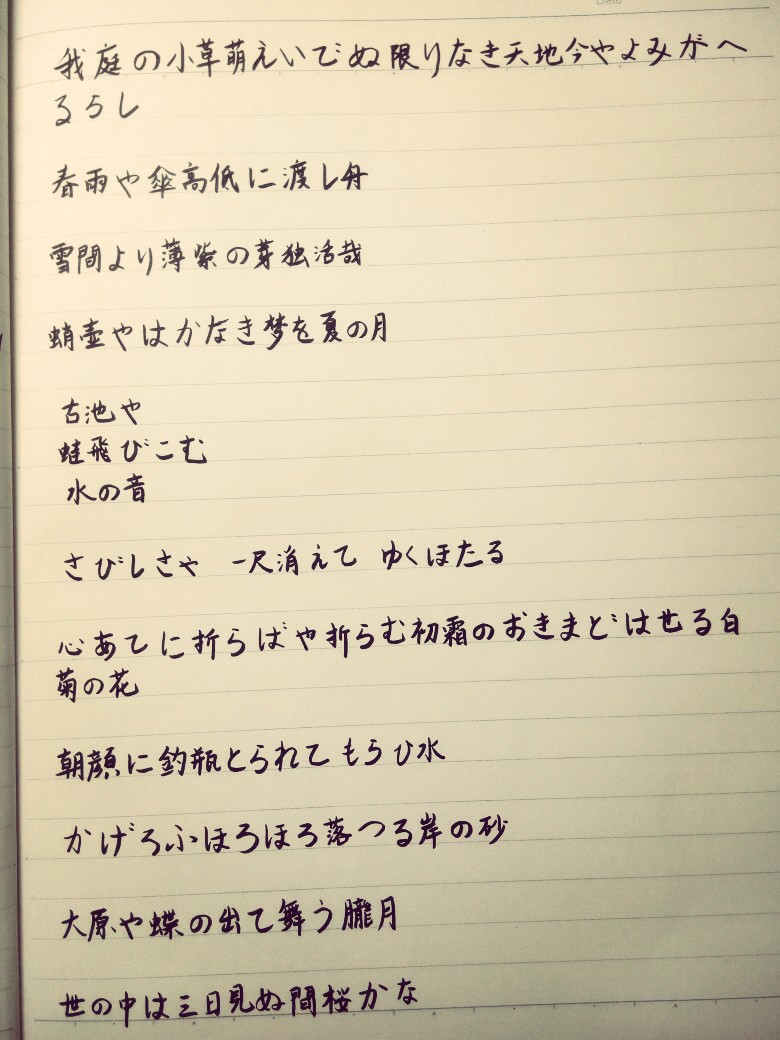 我庭の小草萌えいでぬ限りなき天地今やよみがへ
るらし
春雨や傘高低に渡し舟
雪間より薄紫の芽独活哉
蛸壺やはかなき梦を夏の月
古池や
蛙飛びこむ
水の音
さびしさや 一尺消えて ゆくほたる
心あてに折らばや折らむ初霜のおきまどはせる白
菊の花
朝顔に釣瓶とられてもらひ水
かげろふほろほろ落つる岸の砂
大原や蝶の出て舞う朧月
世の中は三日見ぬ間桜かな